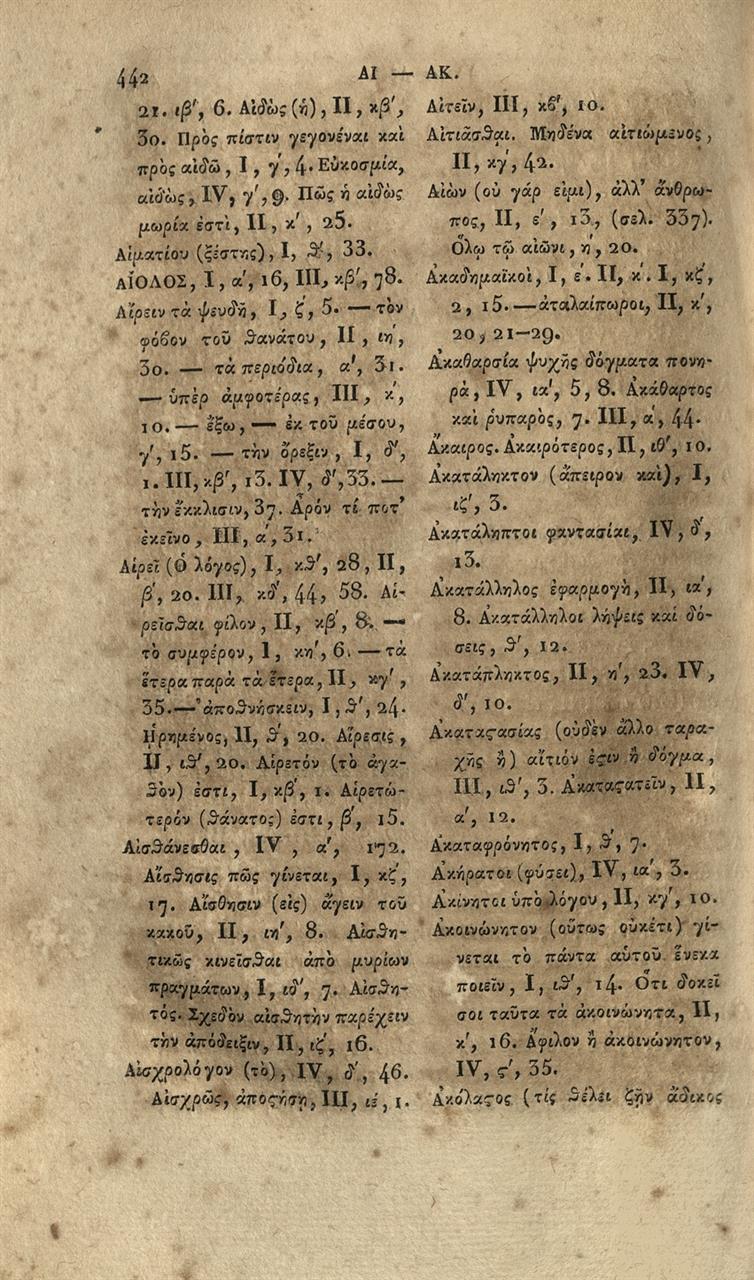 442
ΑΙ — ΑΚ.
21. ιβ′, 6. Αἰδὼς (ἡ), II, κβ′,
30. Πρὸς πίστιν γεγονέναι καὶ
πρὸς αἰδῶ, I, γ′, 4. Εὐκοσμία,
αἰδὼς, IV, γ′, 9. Πῶς ἡ αἰδὼς
μωρία ἐστὶ, II, κ′, 25.
Αἱματίου (ξέστης), I, ϑ′, 33.
ΑΙΟΛΟΣ, I, α′, 16, III, κβ′, 78.
Αἴρειν τὰ ψευδῆ, I, ζ′, 5. — τὸν
φόβον τοῦ ϑανάτου, II, ιη′,
30. — τὰ περιόδια, α′, 31.
— ὑπὲρ ἀμφοτέρας, III, κ′,
10. — ἔξω, — ἐκ τοῦ μέσου,
γ′, 15. — τὴν ὄρεξιν, I, δ′,
1. III, κβ′, 13. IV, δ′, 33. —
τὴν ἔκκλισιν, 37. Ἆρόν τί ποτ᾽
ἐκεῖνο, III, α′, 31.
Αἱρεῖ (Ὁ λόγος), I, κϑ′, 28, II,
β′, 20. III, κδ′, 44, 58. Αἱ-
ρεῖσϑαι φίλον, II, κβ′, 8. —
τὸ συμφέρον, I, κη′, 6. — τὰ
ἕτερα παρὰ τὰ ἕτερα, II, κγ′,
35. — ἀποϑνήσκειν, I, ϑ′, 24.
Ἡρημένος, II, ϑ′, 20. Αἵρεσις,
II, ιϑ′, 20. Αἱρετόν (τὸ ἀγα-
ϑὸν) ἐστι, I, κβ′, 1. Αἱρετώ-
τερόν (ϑάνατος) ἐστι, β′, 15.
Αἰσϑάνεσθαι, IV, α′, 172.
Αἴσϑησις πῶς γίνεται, I, κζ′,
17. Αἴσθησιν (εἰς) ἄγειν τοῦ
κακοῦ, II, ιη′, 8. Αἰσϑη-
τικῶς κινεῖσϑαι ἀπὸ μυρίων
πραγμάτων, I, ιδ′, 7. Αἰσϑη-
τός. Σχεδὸν αἰσϑητὴν παρέχειν
τὴν ἀπόδειξιν, II, ιζ′, 16.
Αἰσχρολόγον (τὸ), IV, δ′, 46.
Αἰσχρῶς, ἀποϛήσῃ, III, ιέ, 1.
Αἰτεῖν, III, κϐ′, 10.
Αἰτιᾶσϑαι. Μηδένα αἰτιώμενος,
II, κγ′, 42.
Αἰών (οὐ γάρ εἰμι), ἀλλ᾽ ἄνθρω-
πος, II, ε′, 13, (σελ. 337).
Ὅλῳ τῷ αἰῶνι, η′, 20.
Ἀκαδημαϊκοὶ, I, ε′. II, κ′. I, κζ′,
2, 15. — ἀταλαίπωροι, II, κ′,
20, 21–29.
Ἀκαθαρσία ψυχῆς δόγματα πονη-
ρὰ, IV, ια′, 5, 8. Ἀκάθαρτος
καὶ ῥυπαρὸς, 7. III, α′, 44.
Ἄκαιρος. Ἀκαιρότερος, II, ιθ′, 10.
Ἀκατάληκτον (ἄπειρον καὶ), I,
ιζ′, 3.
Ἀκατάληπτοι φαντασίαι, IV, δ′,
13.
Ἀκατάλληλος ἐφαρμογὴ, II, ια′,
8. Ἀκατάλληλοι λήψεις καὶ δό-
σεις, ϑ′, 12.
Ἀκατάπληκτος, II, η′, 23. IV,
δ′, 10.
Ἀκαταϛασίας (οὐδὲν ἄλλο ταρα-
χῆς ἢ) αἴτιόν ἐϛιν ἢ δόγμα,
III, ιϑ′, 3. Ἀκαταϛατεῖν, II,
α′, 12.
Ἀκαταφρόνητος, I, ϑ′, 7.
Ἀκήρατοι (φύσει), IV, ια′, 3.
Ἀκίνητοι ὑπὸ λόγου, II, κγ′, 10.
Ἀκοινώνητον (οὕτως οὐκέτι) γί-
νεται τὸ πάντα αὑτοῦ ἕνεκα
ποιεῖν, I, ιϑ′, 14. Ὅτι δοκεῖ
σοι ταῦτα τὰ ἀκοινώνητα, II,
κ′, 16. Ἄφιλον ἢ ἀκοινώνητον,
IV, ϛ′, 35.
Ἀκόλαϛος (τίς ϑέλει ζῆν ἄδικος